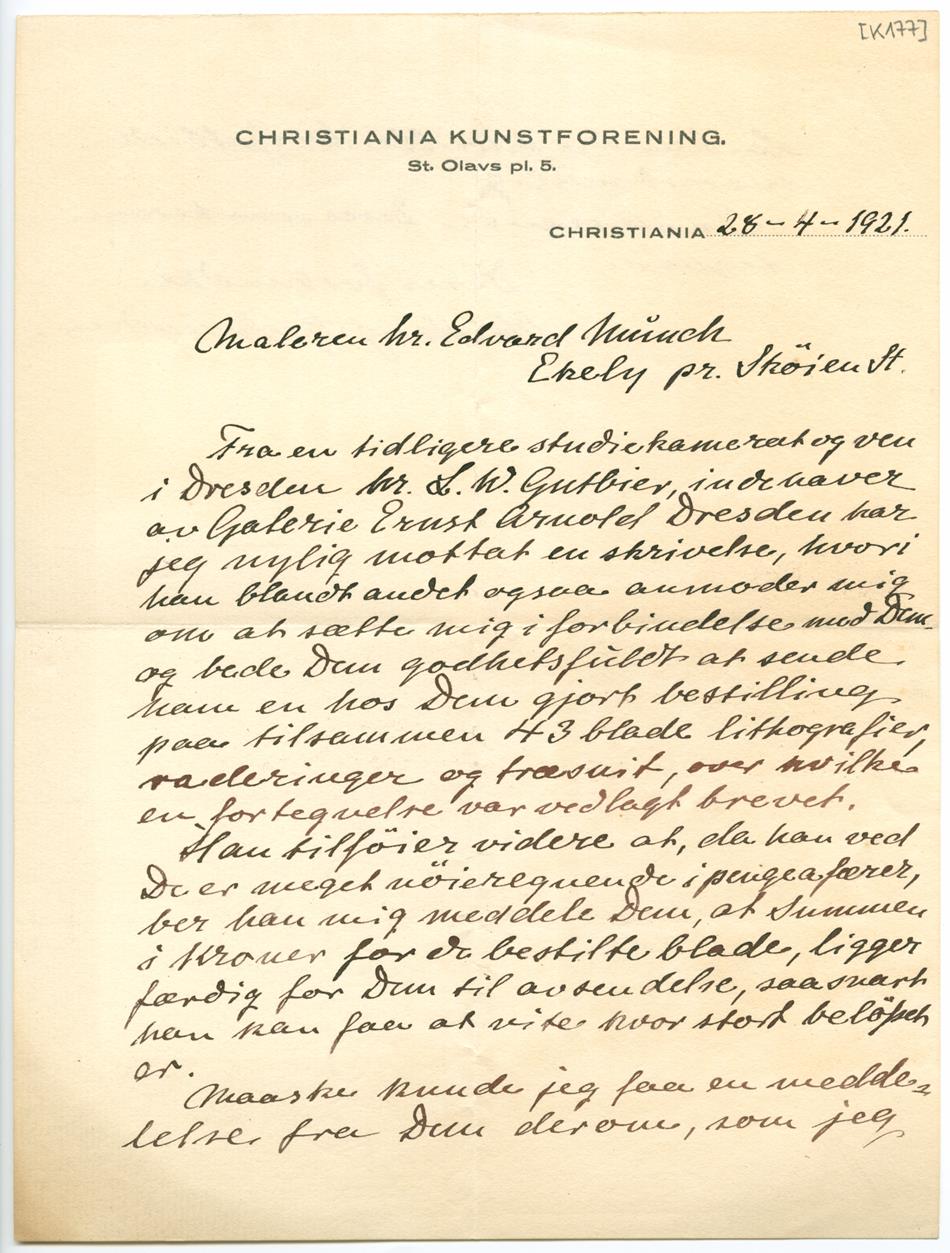 [K177]
CHRISTIANIA KUNSTFORENING.
St. Olavs pl. 5.
CHRISTIANIA 28-4-1921.
Maleren hr. Edvard Munch
Ekely pr. Sköien St.
Fra en tidligere studiekamerat og ven
i Dresden hr. L. W. Gutbier, indehaver
av Galerie Ernst Arnold Dresden har
jeg nylig mottat en skrivelse, hvori
han blandt andet ogsaa anmoder mig
om at sætte mig i forbindelse med Dem
og bede Dem godhetsfuldt at sende
ham en hos Dem gjort bestilling
paa tilsammen 43 blade lithografier,
raderinger og træsnit, over hvilke
en fortegnelse var vedlagt brevet.
Han tilföier videre at, da han ved
De er meget nöieregnende i pengeafærer,
ber han mig meddele Dem, at Summen
i Kroner for de bestilte blade, ligger
færdig for Dem til avsendelse, saasnart
han kan faa at vite hvor stort belöpet
er.
Maaske kunde jeg faa en medde=
lelse fra Dem derom, som jeg